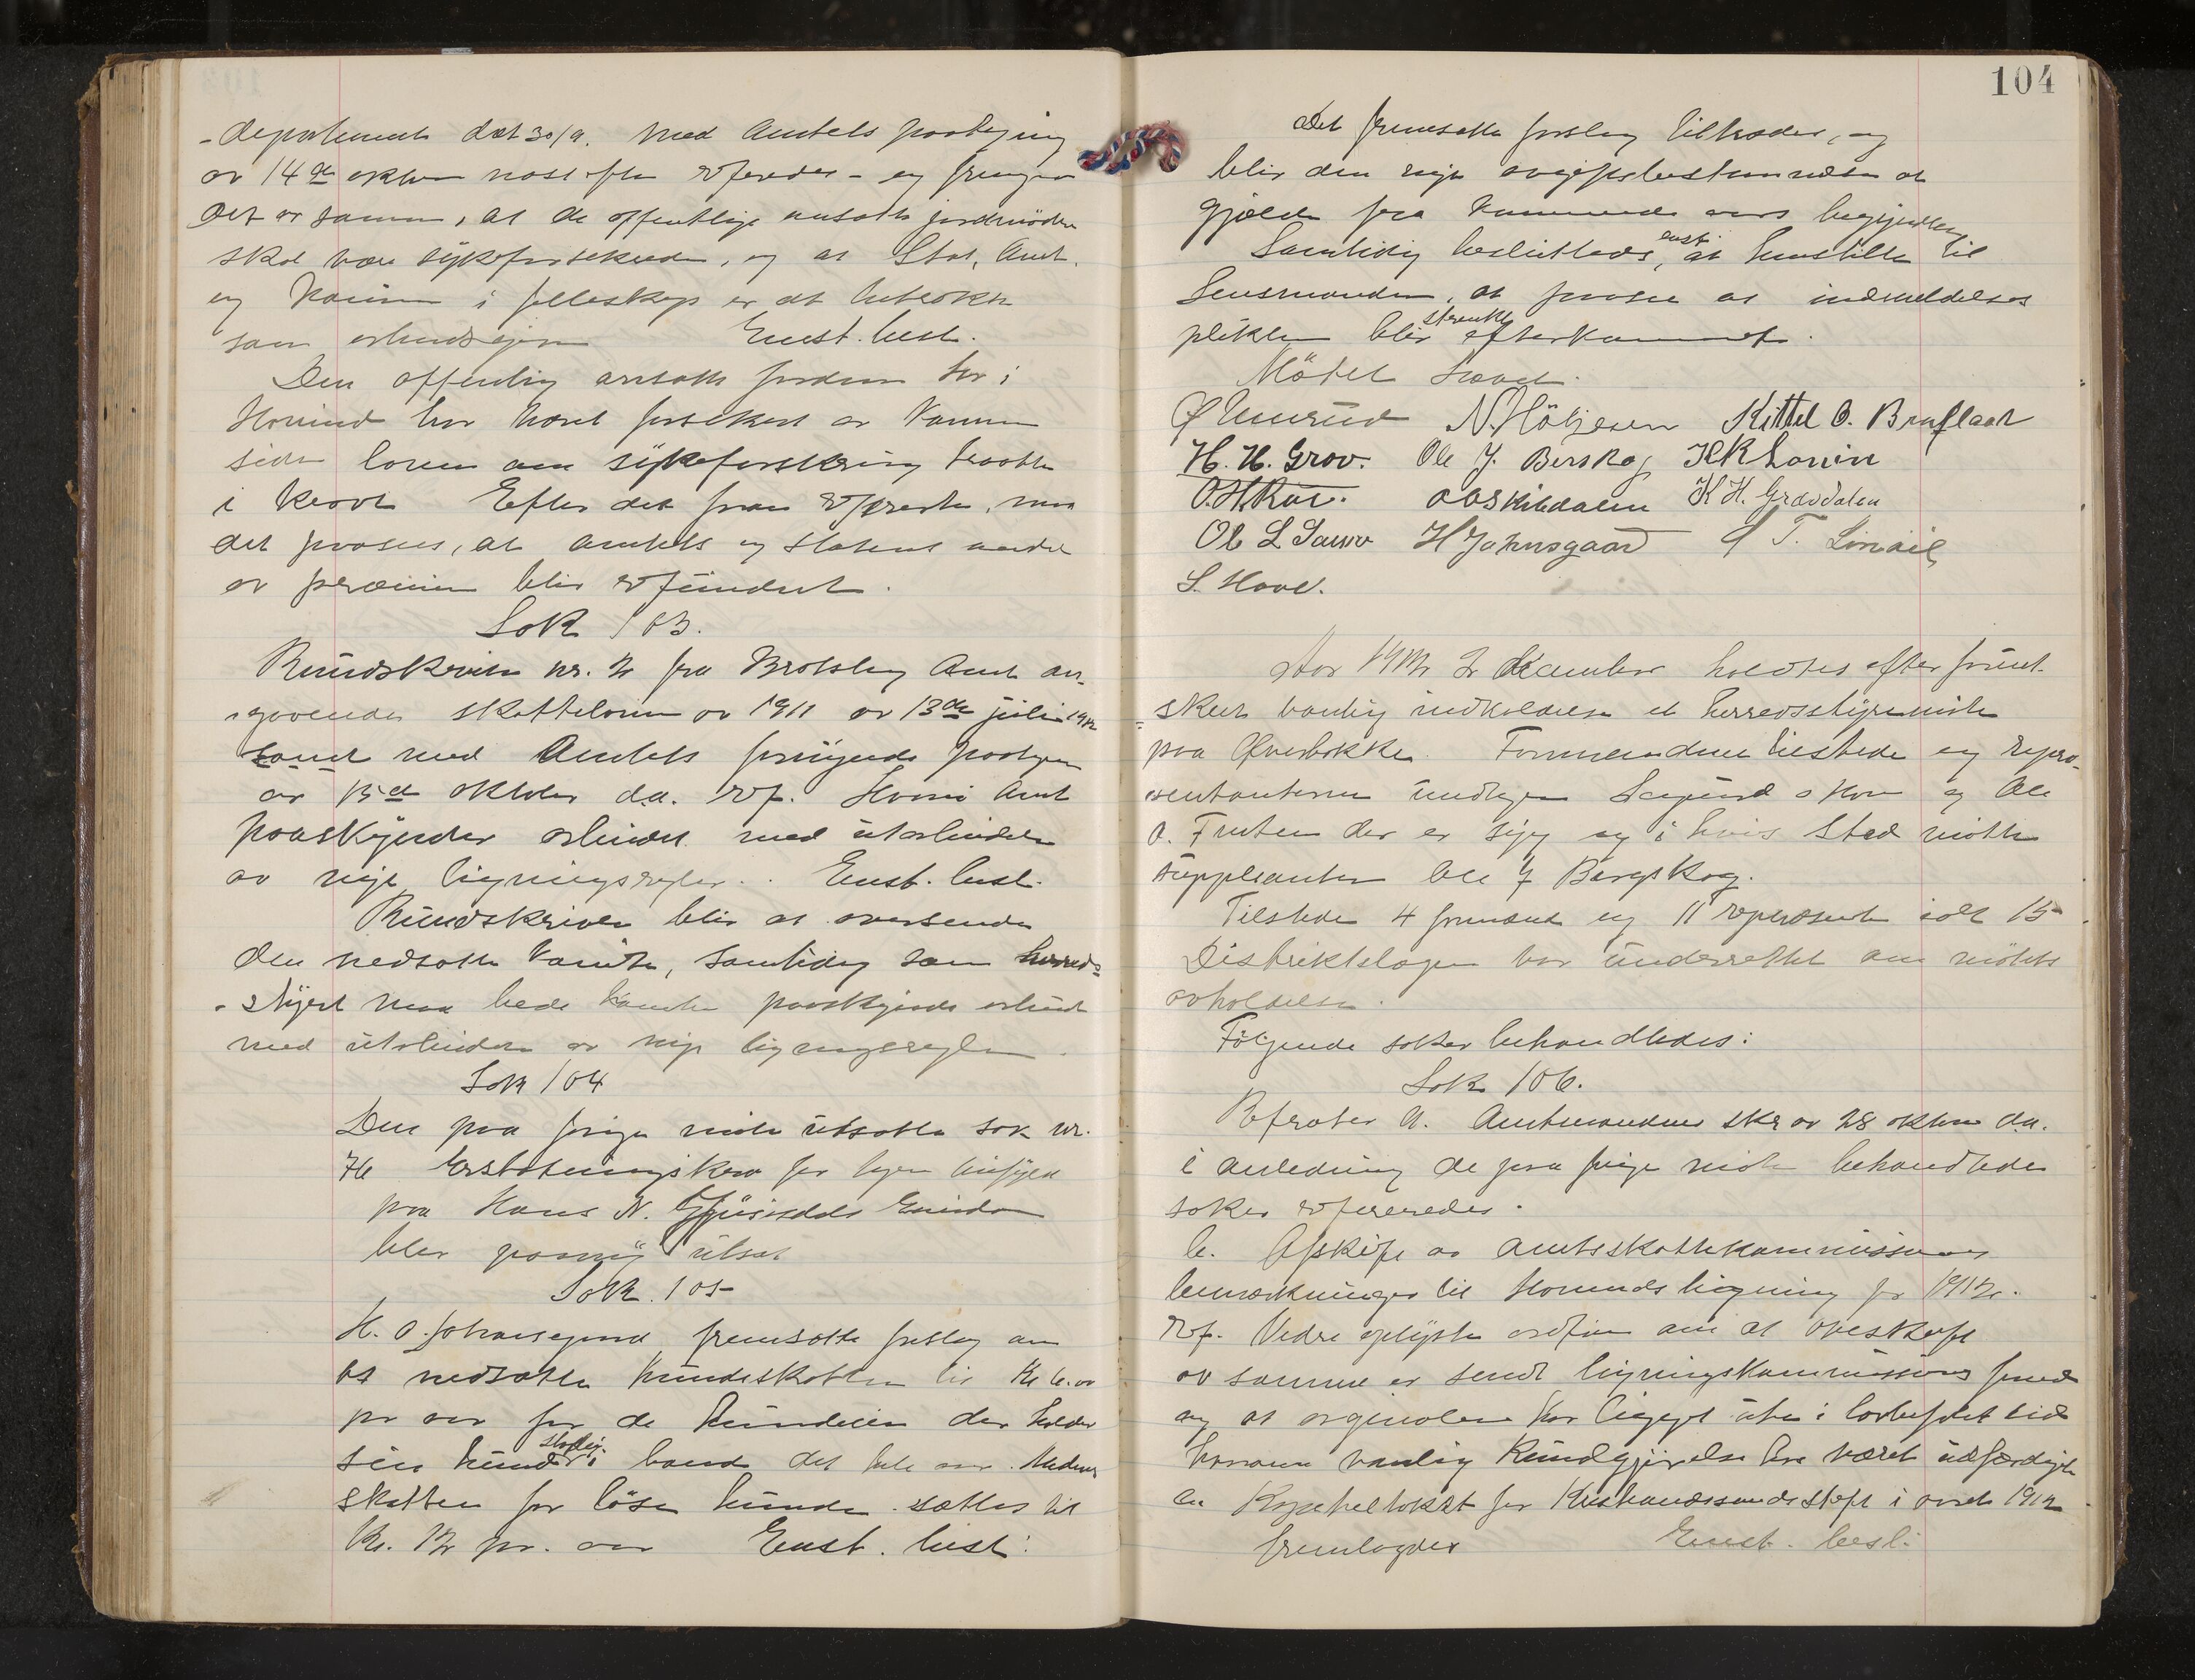 -departement dat 30/9. med Amtets paategning
av 14de oktbr næstefter refereder - og fremgaar
det av samme, at de offentlige ansatte jordmødre
skal være sykeforsikrede, og at Stat, Amt
og Kommune i felleskap er at betrakte
som arbeidsgiver Enst. besl.
Den offentlig ansatte jordmor her i
Hovind har været forsikret av Kommunen
siden loven om sykeforsikring traadte
i kraft Efter det foran refererte, maa
det paasees, at amtets og statens andel
av præmien blir refundert.
Sak 103.
Rundskrivelse nr. 2 fra Bratsberg Amt an-
-gaaende skatteloven av 1911 av 13de juli 1912
samt med Amtets fornyende paategn
av 15de oktober d.a. ref. Hvori Amt
paaskynder arbeidet med utarbeidelse
av nye ligningsregler. Enst. besl.
Rundskrivet blir at oversende
den nedsatte komite, samtidig som herreds-
-styret maa bede komiteen paaskynde arbeidet
med utarbeidelse av nye ligningsregler.
Sak 104
Den paa forrige møte utsatte sak nr.
76 Erstatningskrav for
paa Hans N. Gjuvsdals Eiendom
blev paany utsat
Sak 105
H. O. Johnsgaard fremsatte forslag om
at nedsætte hundeskatten til Kr 6.00
pr aar for de hundeeier der holder
sin hund stadig i baand det hele aar. Medens
skatten for løse hunde sættes til
Kr. 12 pr. aar Enst. besl:
104
Det fremsatte forslag tiltrædes, og
blir den nye avgiftsbestemmelse at
gjælde fra kommende aars begyndelse
Samtidig besluttedes enst. at henstille til
Lensmanden, at paase at indmeldelses
plikten blir strengt efterkommet.
Møtet hævet.
Ø Unsrud N. Høljesen Kittel O. Braflaat
H. H. Grov. Ole J. Berskog KR Lonin
O.H.Roe. OO Skibdalen K H. Grávdalen
Ol L Saure H Johnsgaard T. Linaae
S. Hove.
Aar 1912 2 December holdtes efter forut-
-skeet vanlig indkaldelse et herredsstyremøte
paa Øverbøkke. Formændene tilstede og repræ-
sentanterne undtagen Sigurd O Hov og Ole
O. Fruten der er syg og i hvis sted møtte
suppleanten Ole J Bergskog.
Tilstede 4 formænd og 11 repræsent ialt 15.
Distriktslægen var underrettet om møtets
avholdelse.
Følgende saker behandledes:
Sak 106.
Referater A. Amtmandens skr av 28 oktbr d.a.
i anledning de paa forrige møte behandlede
saker refereredes.
b. Avskrift av amtsskattekommissionens
bemærkninger til Hovinds ligning for 1912.
Ref. Videre oplyste ordfører om at gjenskrift
av samme er sendt ligningskommissionens formd
og at orginalen har ligget ute i lovbefalet tid
hvorom vanlig kundgjørelse har været utfærdiget
c. Kapiteltakst for Kristianssands stift i aaret 1912
fremlagdes Enst. besl.